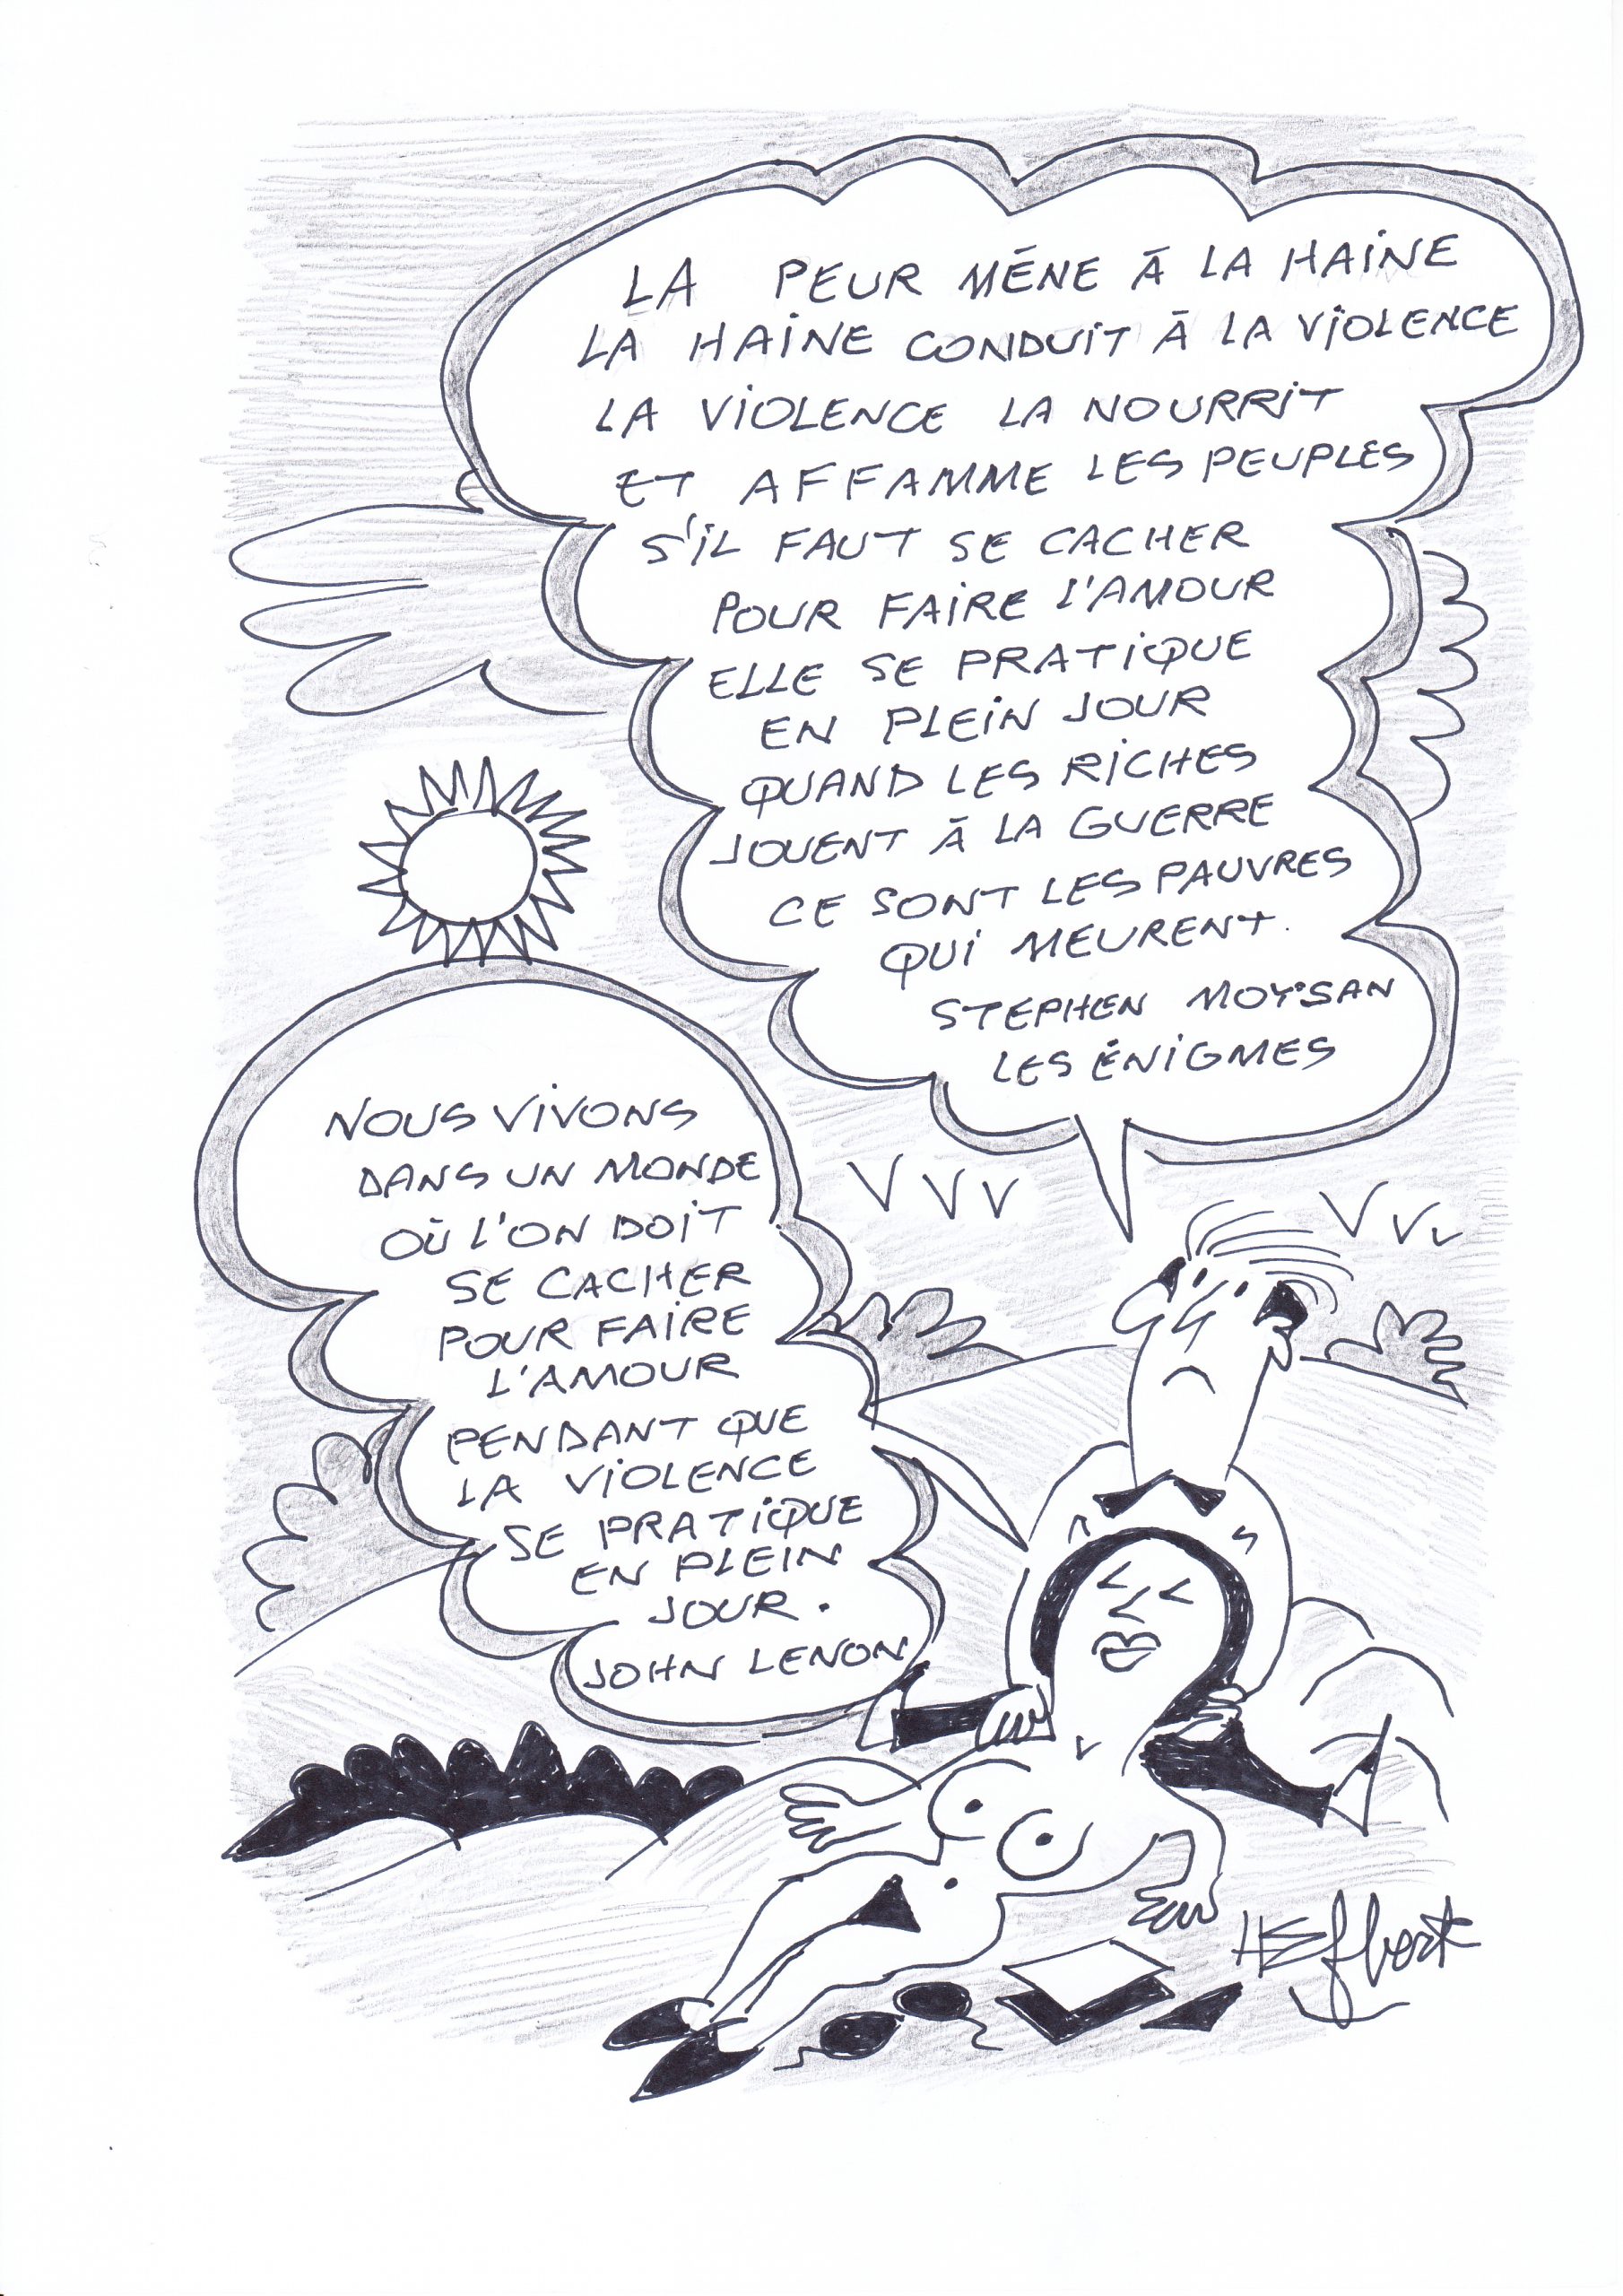 LA PEUR MÈNE À LA HAINE
LA HAINE CONDUIT À LA VIOLENCE
LA VIOLENCE LA NOURRIT
ET AFFAMME LES PEUPLES
S'IL FAUT SE CACHER
POUR FAIRE L'AMOUR
ELLE SE PRATIQUE
EN PLEIN JOUR
QUAND LES RICHES
JOUENT À LA GUERRE
CE SONT LES PAUVRES
QUI MEURENT.
STEPHEN MOYSAN
LES ÉNIGMES
NOUS VIVONS
DANS UN MONDE
OÙ L'ON DOIT
SE CACHER
POUR FAIRE
L'AMOUR
PENDANT QUE
LA VIOLENCE
SE PRATIQUE
EN PLEIN
JOUR.
JOHN LENON